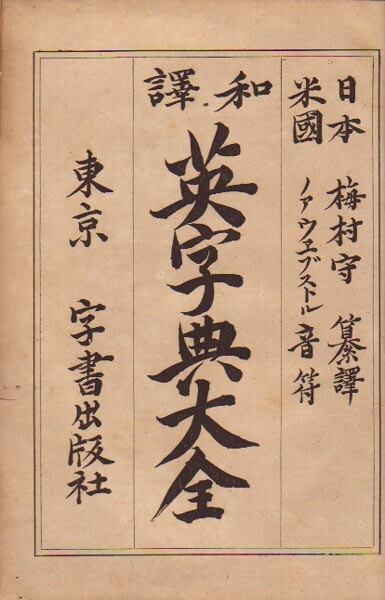 日本 梅村守 纂譯
米國 ノァウヱブストル 音符
和譯
英字典大全
東京 字書出版社